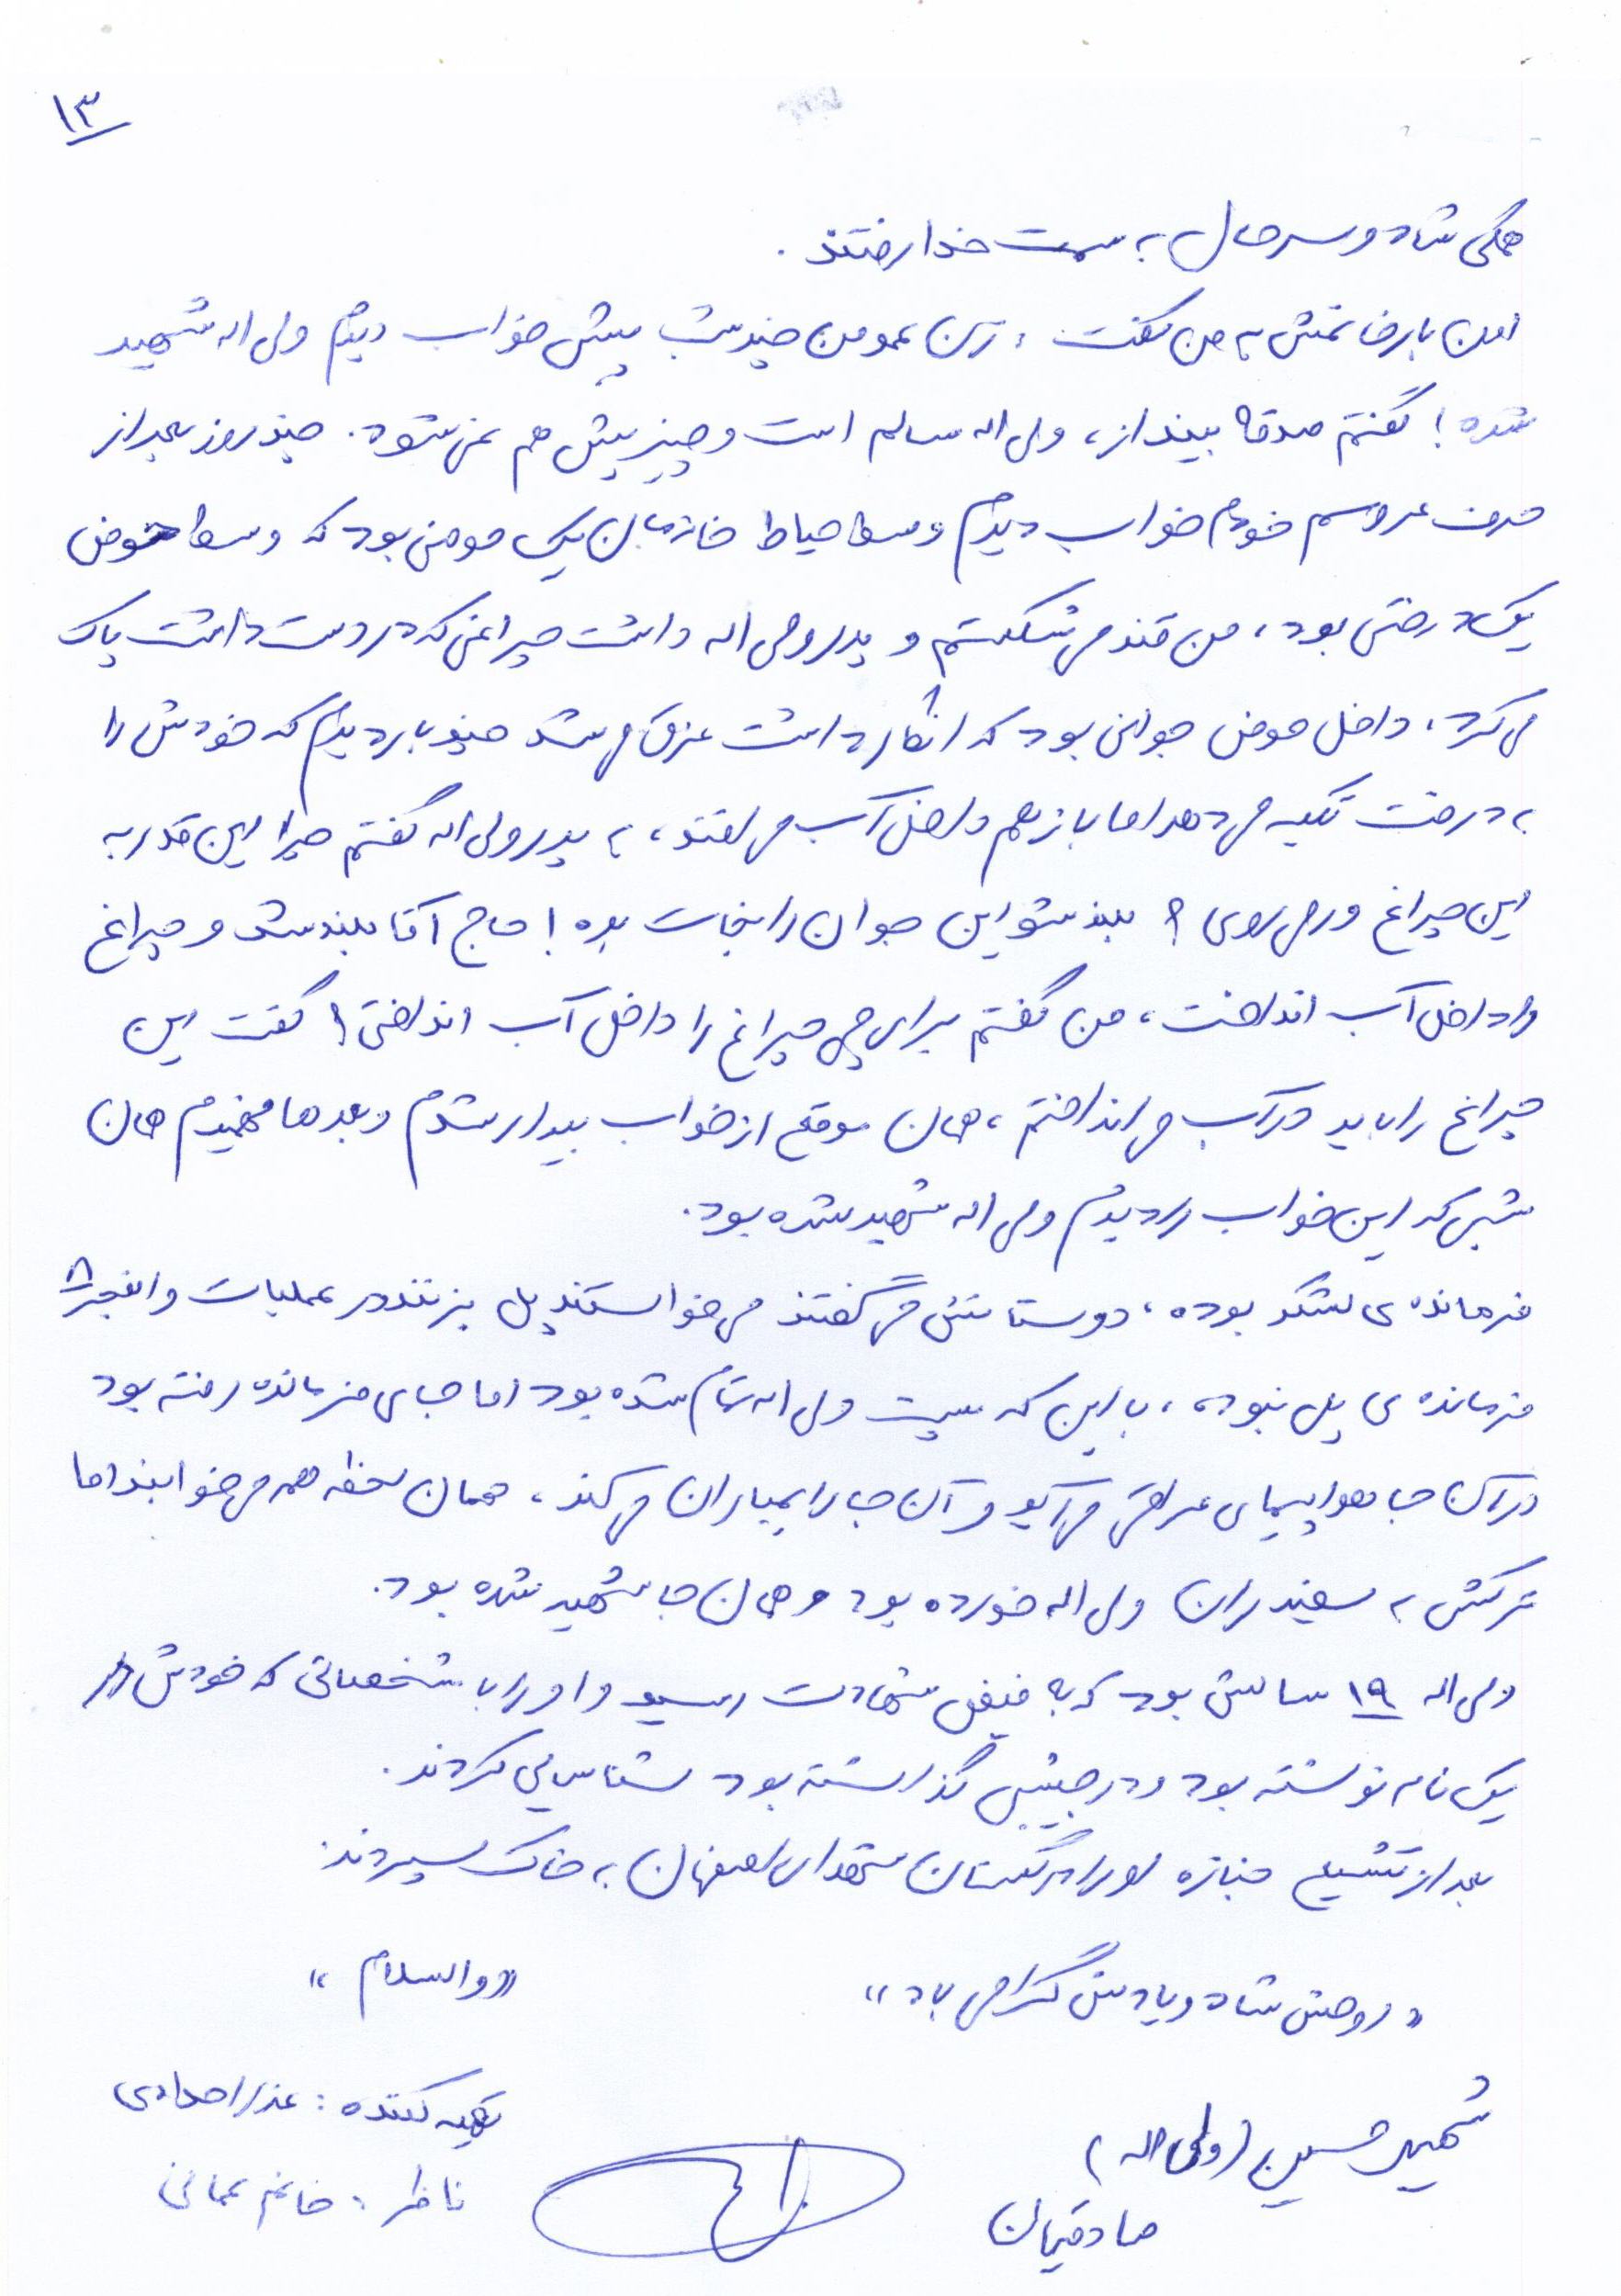 ۱۳
همگی شاد و سرحال به سمت خدا رفتند.
این بار خانمش به من گفت: زن عمو من چند شب پیش خواب دیدم ولی اله شهید
شده! گفتم صدقه بینداز، ولی اله سالم است و چیزیش هم نمی شود. چند روز بعد از
حرف عروسم خودم خواب دیدم وسط حیاط خانه مان یک حوض بود که وسط حوض
یک درختی بود، من قند می شکستم و پدر ولی اله داشت چراغی که در دست داشت پاک
می کرد، داخل حوض جوانی بود که انگار داشت غرق می شد چند بار دیدم که خودش را
به درخت تکیه می دهد اما باز هم داخل آب می افتد، به پدر ولی اله گفتم چرا این قدر به
این چراغ ور می روی؟ بلند شو این جوان را نجات بده! حاج آقا بلند شد و چراغ
را داخل آب انداخت، من گفتم برای چی چراغ را داخل آب انداختی؟ گفت این
چراغ را باید در آب می انداختم، همان موقع از خواب بیدار شدم و بعدها فهمیدم همان
شبی که این خواب را دیدم ولی اله شهید شده بود.
فرمانده ی لشکر بوده، دوستانش می گفتند می خواستند پل بزنند در عملیات والفجر ۸
فرمانده ی پل نبوده، با این که پست ولی اله تمام شده بود اما جای فرمانده رفته بود
در آن جا هواپیمای عراقی می آید و آن جا را بمباران می کند، همان لحظه همه می خوابند اما
ترکش به سفیدران ولی اله خورده بود و همان جا شهید شده بود.
ولی اله ۱۹ سالش بود که به فیض شهادت رسید و او را با مشخصاتی که خودش در
یک نامه نوشته بود و در جیبش گذاشته بود شناسایی کردند.
بعد از تشییع جنازه او را در گلستان شهدای اصفهان به خاک سپردند.
«روحش شاد و یادش گرامی باد»
«والسلام»
شهید حسین (ولی اله)
صادقیان
تهیه کننده: عذرا احمادی
ناظر: خانم عمانی